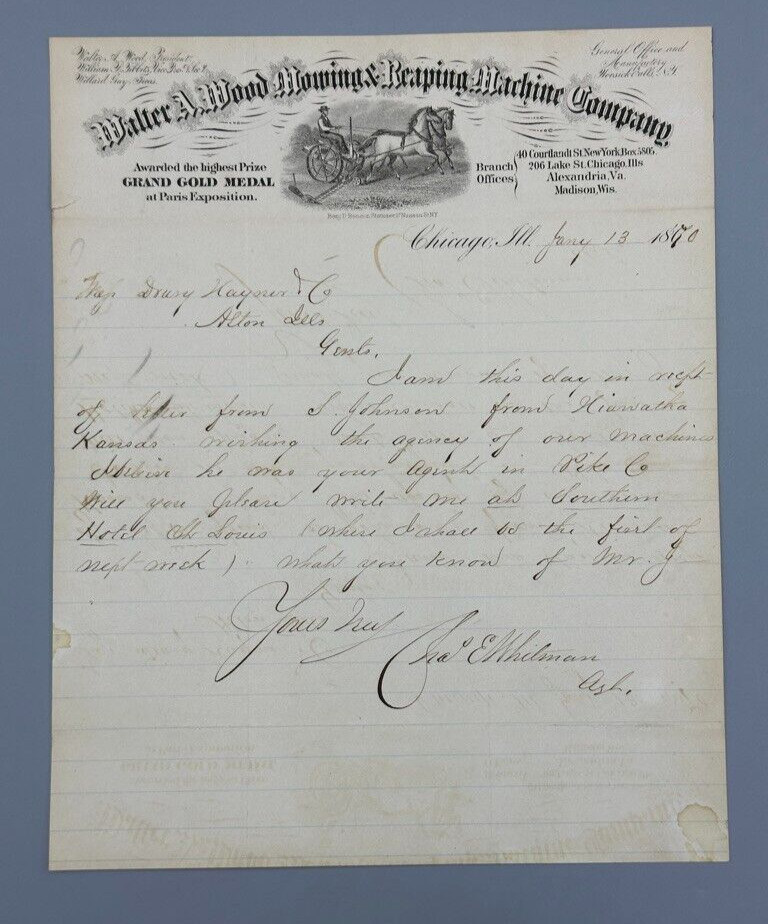 Walter A. Wood, President.
Willard Gay, Treas.
General Office and
Manufactory
Hoosick Falls, N.Y.
Walter A. Wood Mowing & Reaping Machine Company.
Awarded the highest Prize
GRAND GOLD MEDAL
at Paris Exposition.
Branch
Offices
40 Courtlandt St. New York, Box 5805.
206 Lake St. Chicago, Ills
Alexandria, Va.
Madison, Wis.
Chicago, Ill. Jany 13 1870
Drury Hayner & Co
Alton Ills
Gents,
I am this day in rect
of letter from S. Johnson from Hiawatha
Kansas wishing the agency of our machines
he was your agent in Pike Co
Will you please write me at Southern
Hotel St Louis (where I shall be the first of
next week) what you know of Mr. J
Yours truly
Chas E Whitman
Agt.